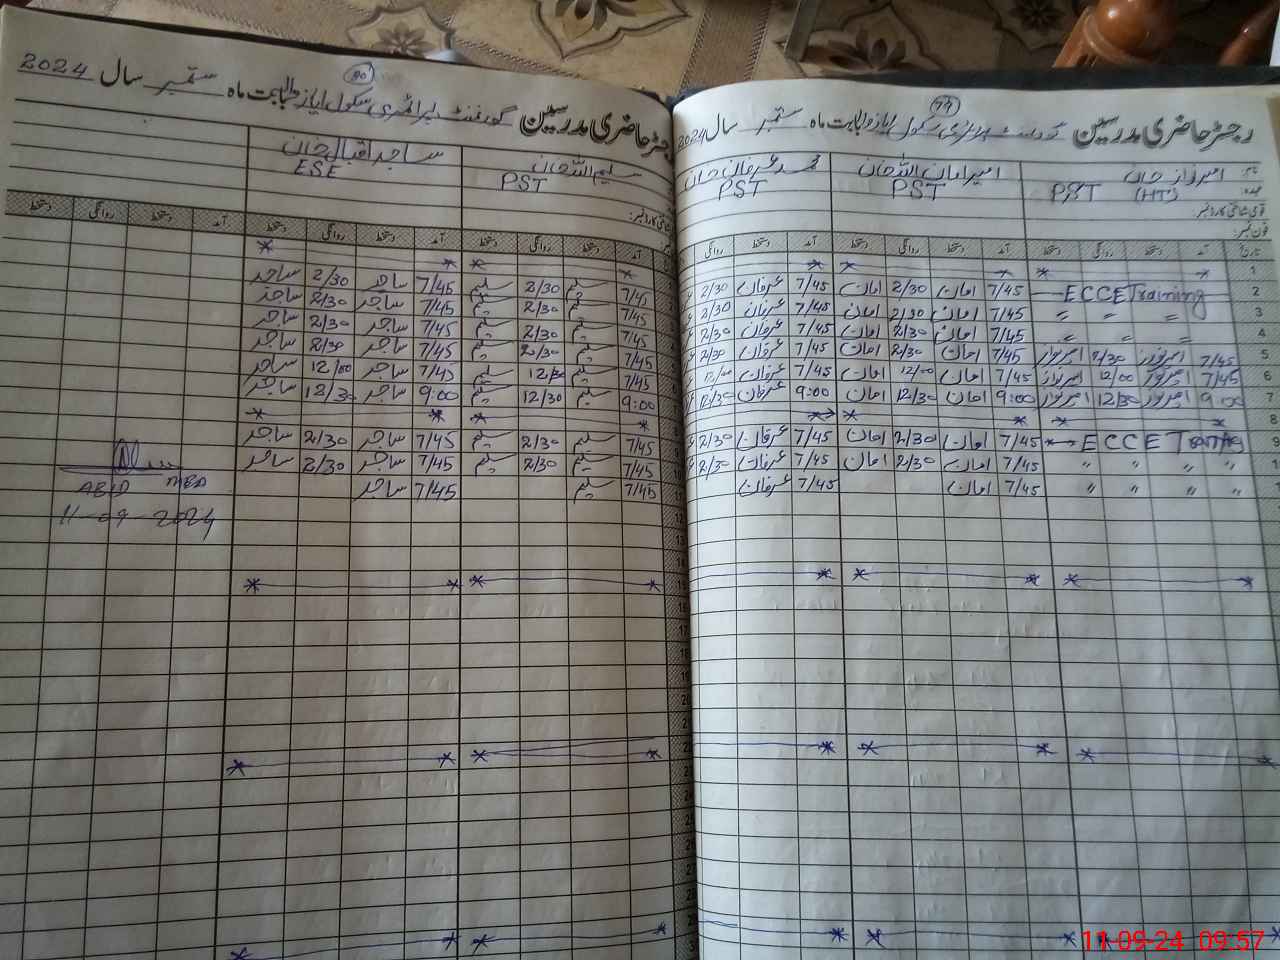 رجسٹر حاضری مدرسین گورنمنٹ پرائمری سکول ایاز والا بابت ماہ ستمبر سال 2024
79
نام امیر نواز خان
امیر امان اللہ خان
محمد عرفان خان
عہدہ PST (HT)
PST
PST
قومی شناختی کارڈ نمبر:
فون نمبر:
تاریخ آمد دستخط روانگی دستخط آمد دستخط روانگی دستخط آمد دستخط روانگی
1 * * * * *
2 ECCE Training 7/45 امان 2/30 امان 7/45 عرفان 2/30
3 〃 〃 〃 7/45 امان 2/30 امان 7/45 عرفان 2/30
〃 〃 〃 7/45 امان 2/30 امان 7/45 عرفان 2/30
5 7/45 امیر نواز 2/30 امیر نواز 7/45 امان 2/30 امان 7/45 عرفان 2/30
6 7/45 امیر نواز 12/00 امیر نواز 7/45 امان 12/00 امان 7/45 عرفان 12/00
7 9:00 امیر نواز 12/30 امیر نواز 9:00 امان 12/30 امان 9:00 عرفان 12/30
8 * * * * *
9 ECCE Training 7/45 امان 2/30 امان 7/45 عرفان 2/30
〃 〃 〃 〃 7/45 امان 2/30 امان 7/45 عرفان 2/30
〃 〃 〃 〃 7/45 امان 7/45 عرفان
رجسٹر حاضری مدرسین گورنمنٹ پرائمری سکول ایاز والا بابت ماہ ستمبر سال 2024
80
سلیم اللہ خان
ساجد اقبال خان
PST
ESE
شناختی کارڈ نمبر:
آمد دستخط روانگی دستخط آمد دستخط روانگی دستخط آمد دستخط روانگی دستخط
* * * *
7/45 سلیم 2/30 سلیم 7/45 ساجد 2/30 ساجد
7/45 سلیم 2/30 سلیم 7/45 ساجد 2/30 ساجد
7/45 سلیم 2/30 سلیم 7/45 ساجد 2/30 ساجد
7/45 سلیم 2/30 سلیم 7/45 ساجد 2/30 ساجد
7/45 سلیم 12/00 سلیم 7/45 ساجد 12/00 ساجد
9:00 سلیم 12/30 سلیم 9:00 ساجد 12/30 ساجد
* * * *
7/45 سلیم 2/30 سلیم 7/45 ساجد 2/30 ساجد
7/45 سلیم 2/30 سلیم 7/45 ساجد 2/30 ساجد
7/45 سلیم 7/45 ساجد
ABID MEA
11-09-2024
11-09-24 09:57